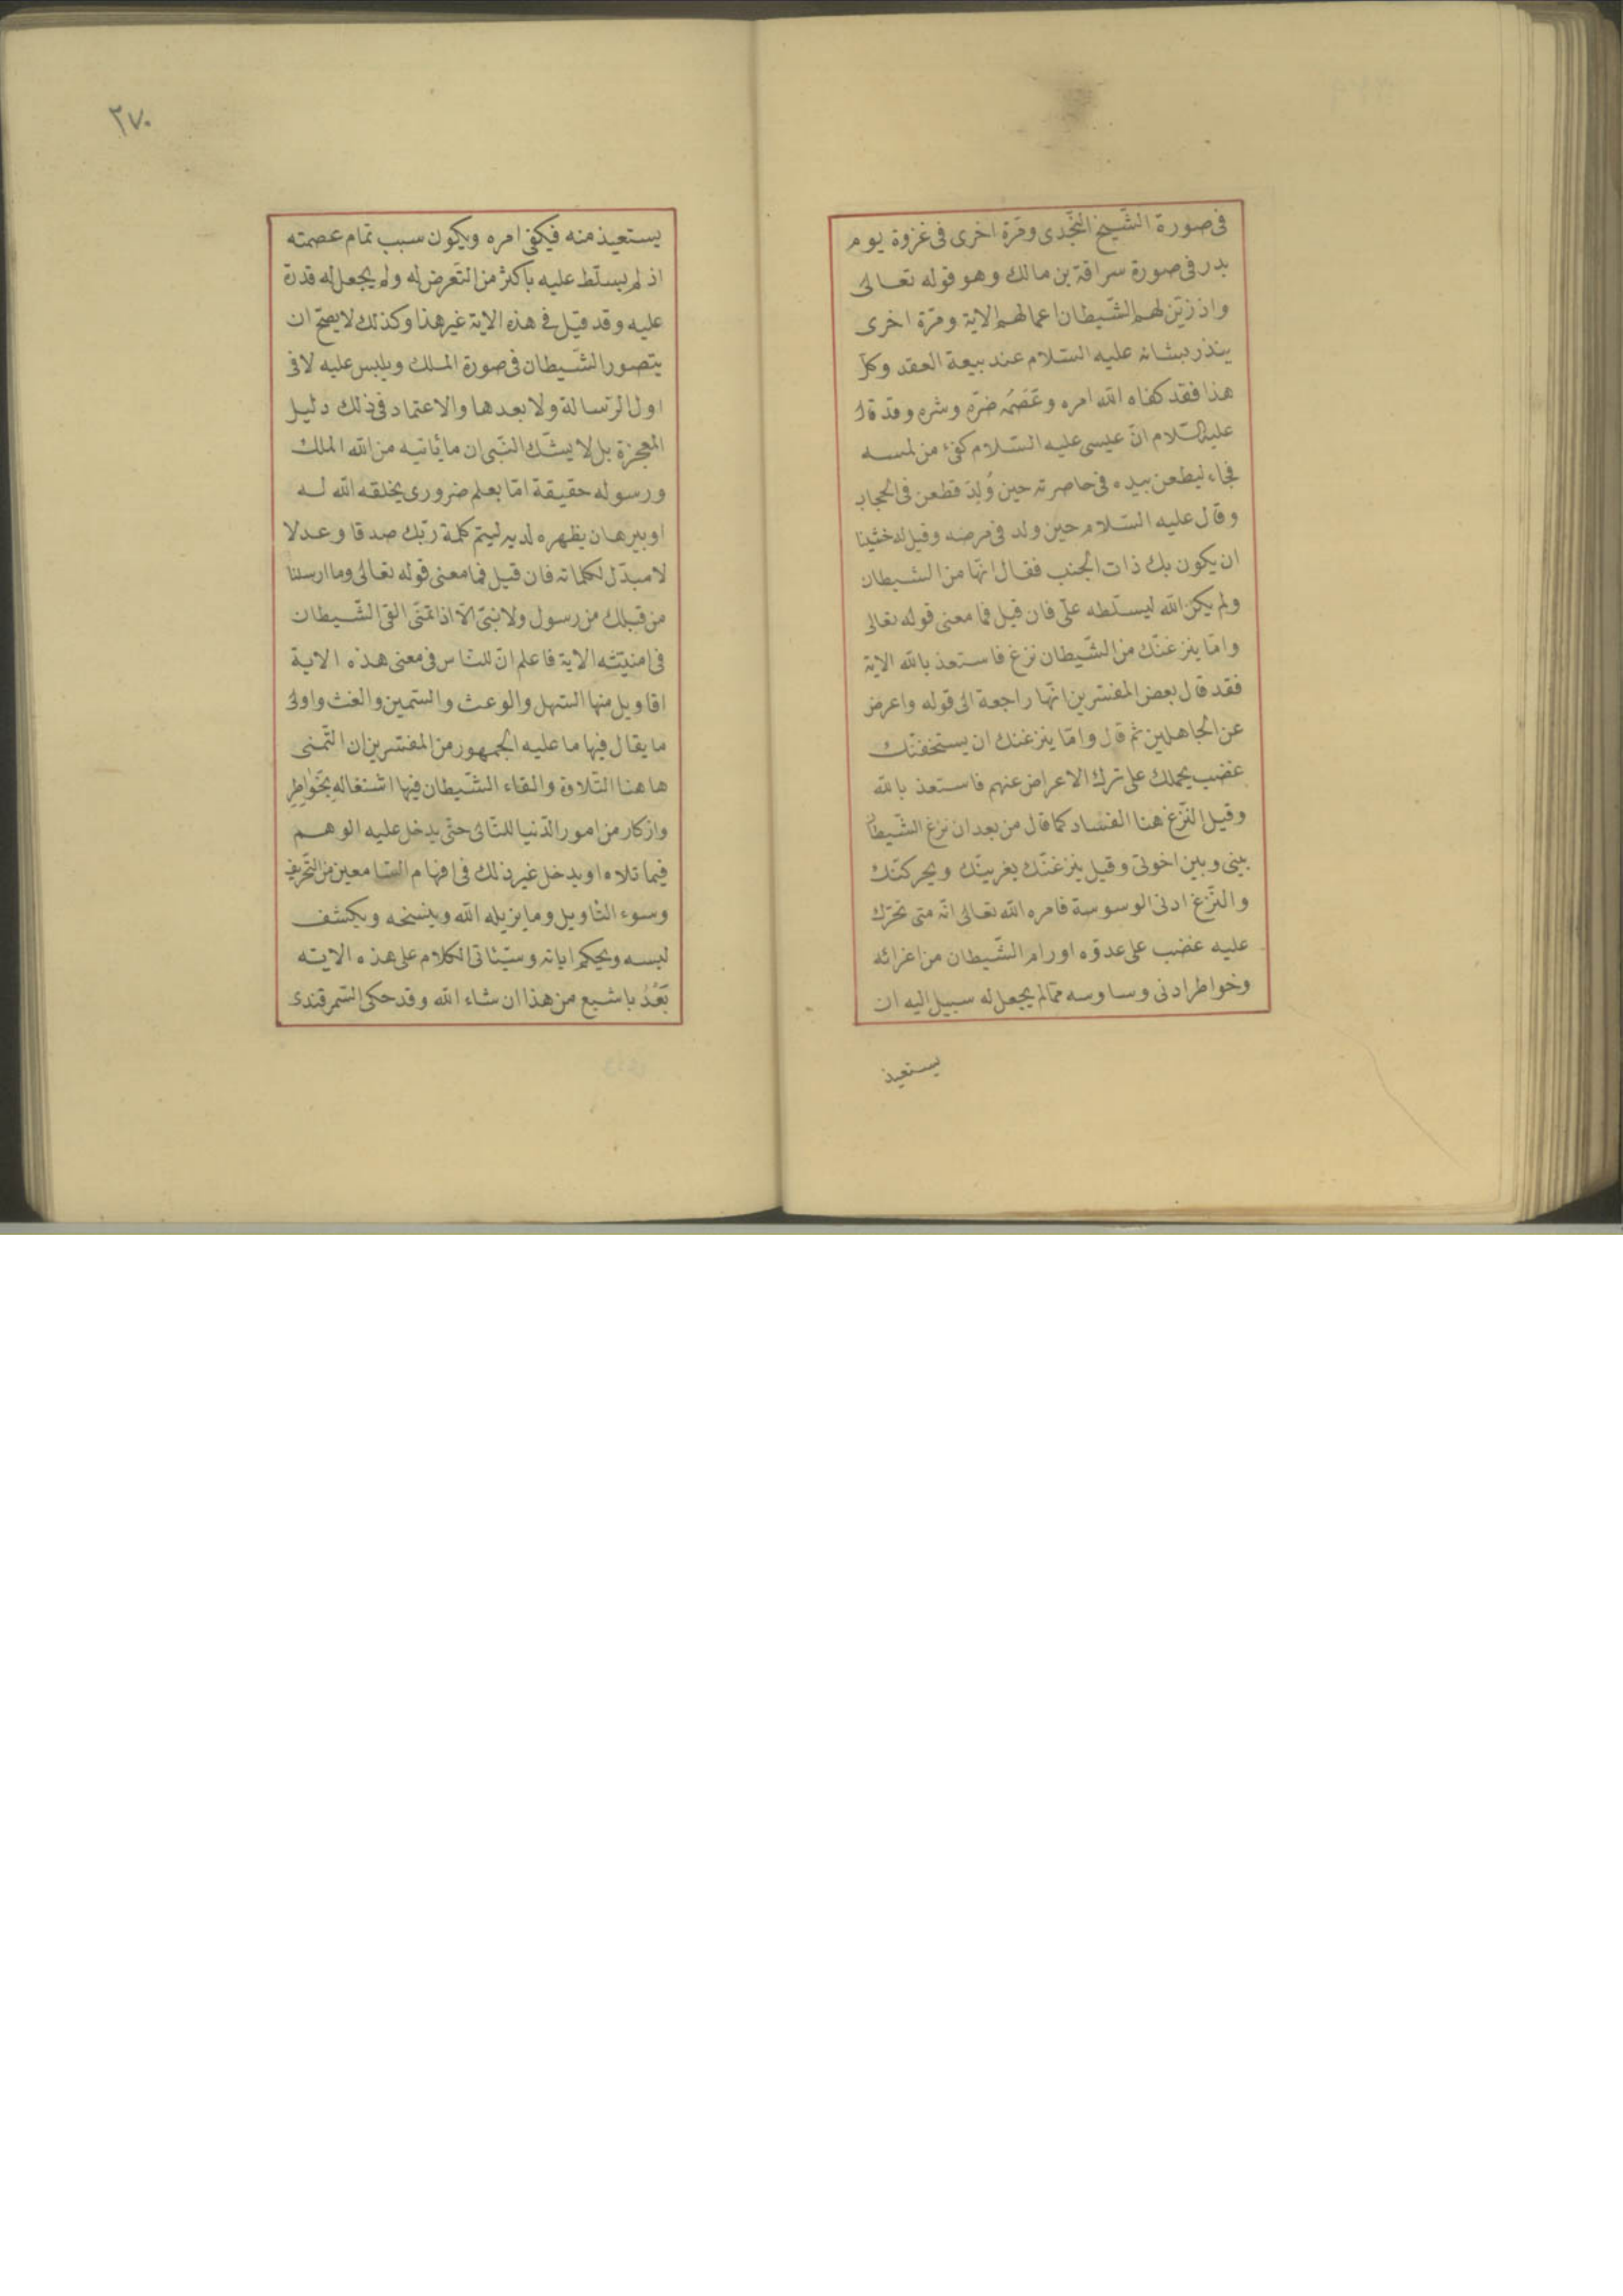 فى صورة الشّيخ النّجدى ومّرة اخرى فى غزوة يوم
بدر فى صورة سراقة بن مالك وهو قوله تعالى
واذ زيّن لهم الشّيطان اعمالهم الاية ومّرة اخرى
ينذر بشانه عليه السّلام عند بيعة العقد وكلّ
هذا فقد كفاه الله امره وعَصَمُه ضرّه وشره وقد قال
عليه السّلام انّ عيسى عليه السّلام كفى من لمسه
فجاء ليطعن بيده فى حاصرته حين وُلِدَ فطعن فى الحجاب
وقال عليه السّلام حين ولد فى مرضه وقيل له خشينا
ان يكون بك ذات الجنب فقال انّها من الشّيطان
ولم يكن الله ليسلّطه علىّ فان قيل فما معنى قوله تعالى
وامّا ينزغنّك من الشّيطان نزغ فاستعذ بالله الاية
فقد قال بعض المفسّرين انّها راجعة الى قوله واعرض
عن الجاهلين ثم قال وامّا ينزغنك ان يستخفنّك
غضب يحملك على ترك الاعراض عنهم فاستعذ بالله
وقيل النّزغ هنا الفساد كما قال من بعد ان نزغ الشّيطان
بينى وبين اخوتى وقيل ينزغنّك يغرينّك ويحركنّك
والنّزغ ادنى الوسوسة فامره الله تعالى انّه متى تحرّك
عليه غضب على عدوّه اورام الشّيطان من اغرائه
وخواطر ادنى وساوسه ممّا لم يجعل له سبيل اليه ان
يستعيذ
٢٧٠
يستعيذ منه فيكفى امره ويكون سبب تمام عصمته
اذ لم يسلّط عليه باكثر من التّعرض له ولم يجعل له قدرة
عليه وقد قيل فى هذه الاية غير هذا وكذلك لا يصحّ ان
يتصور الشّيطان فى صورة الملك ويلبس عليه لا فى
اول الرّسالة ولا بعدها والاعتماد فى ذلك دليل
المعجزة بل لا يشّك النّبى ان ما يأتيه من الله الملك
ورسوله حقيقة امّا بعلم ضرورى يخلقه الله له
او ببرهان يظهره لديه ليتم كلمة ربّك صدقا وعدلا
لا مبدّل لكلماته فان قيل فما معنى قوله تعالى وما ارسلنا
من قبلك من رسول ولا نبىّ الّا اذا تمنّى القى الشّيطان
فى امنيّته الاية فاعلم انّ للنّاس فى معنى هذه الاية
اقاويل منها السّهل والوعث والسّمين والغث واولى
ما يقال فيها ما عليه الجمهور من المفسّرين ان التّمنى
هاهنا التّلاوة والقاء الشّيطان فيها اشتغاله بِخَوٰاطِرِ
واذكار من امور الدّنيا للتّالى حتّى يدخل عليه الوهم
فيما تلاه او يدخل غير ذلك فى افهام السّامعين من التّحريف
وسوء التّاويل وما يزيله الله وينسخه ويكشف
لبسه ويحكم اياته وسيّأتى الكلام على هذه الايته
بَعْدُ باشبع من هذا ان شاء الله وقد حكى السّمرقندى